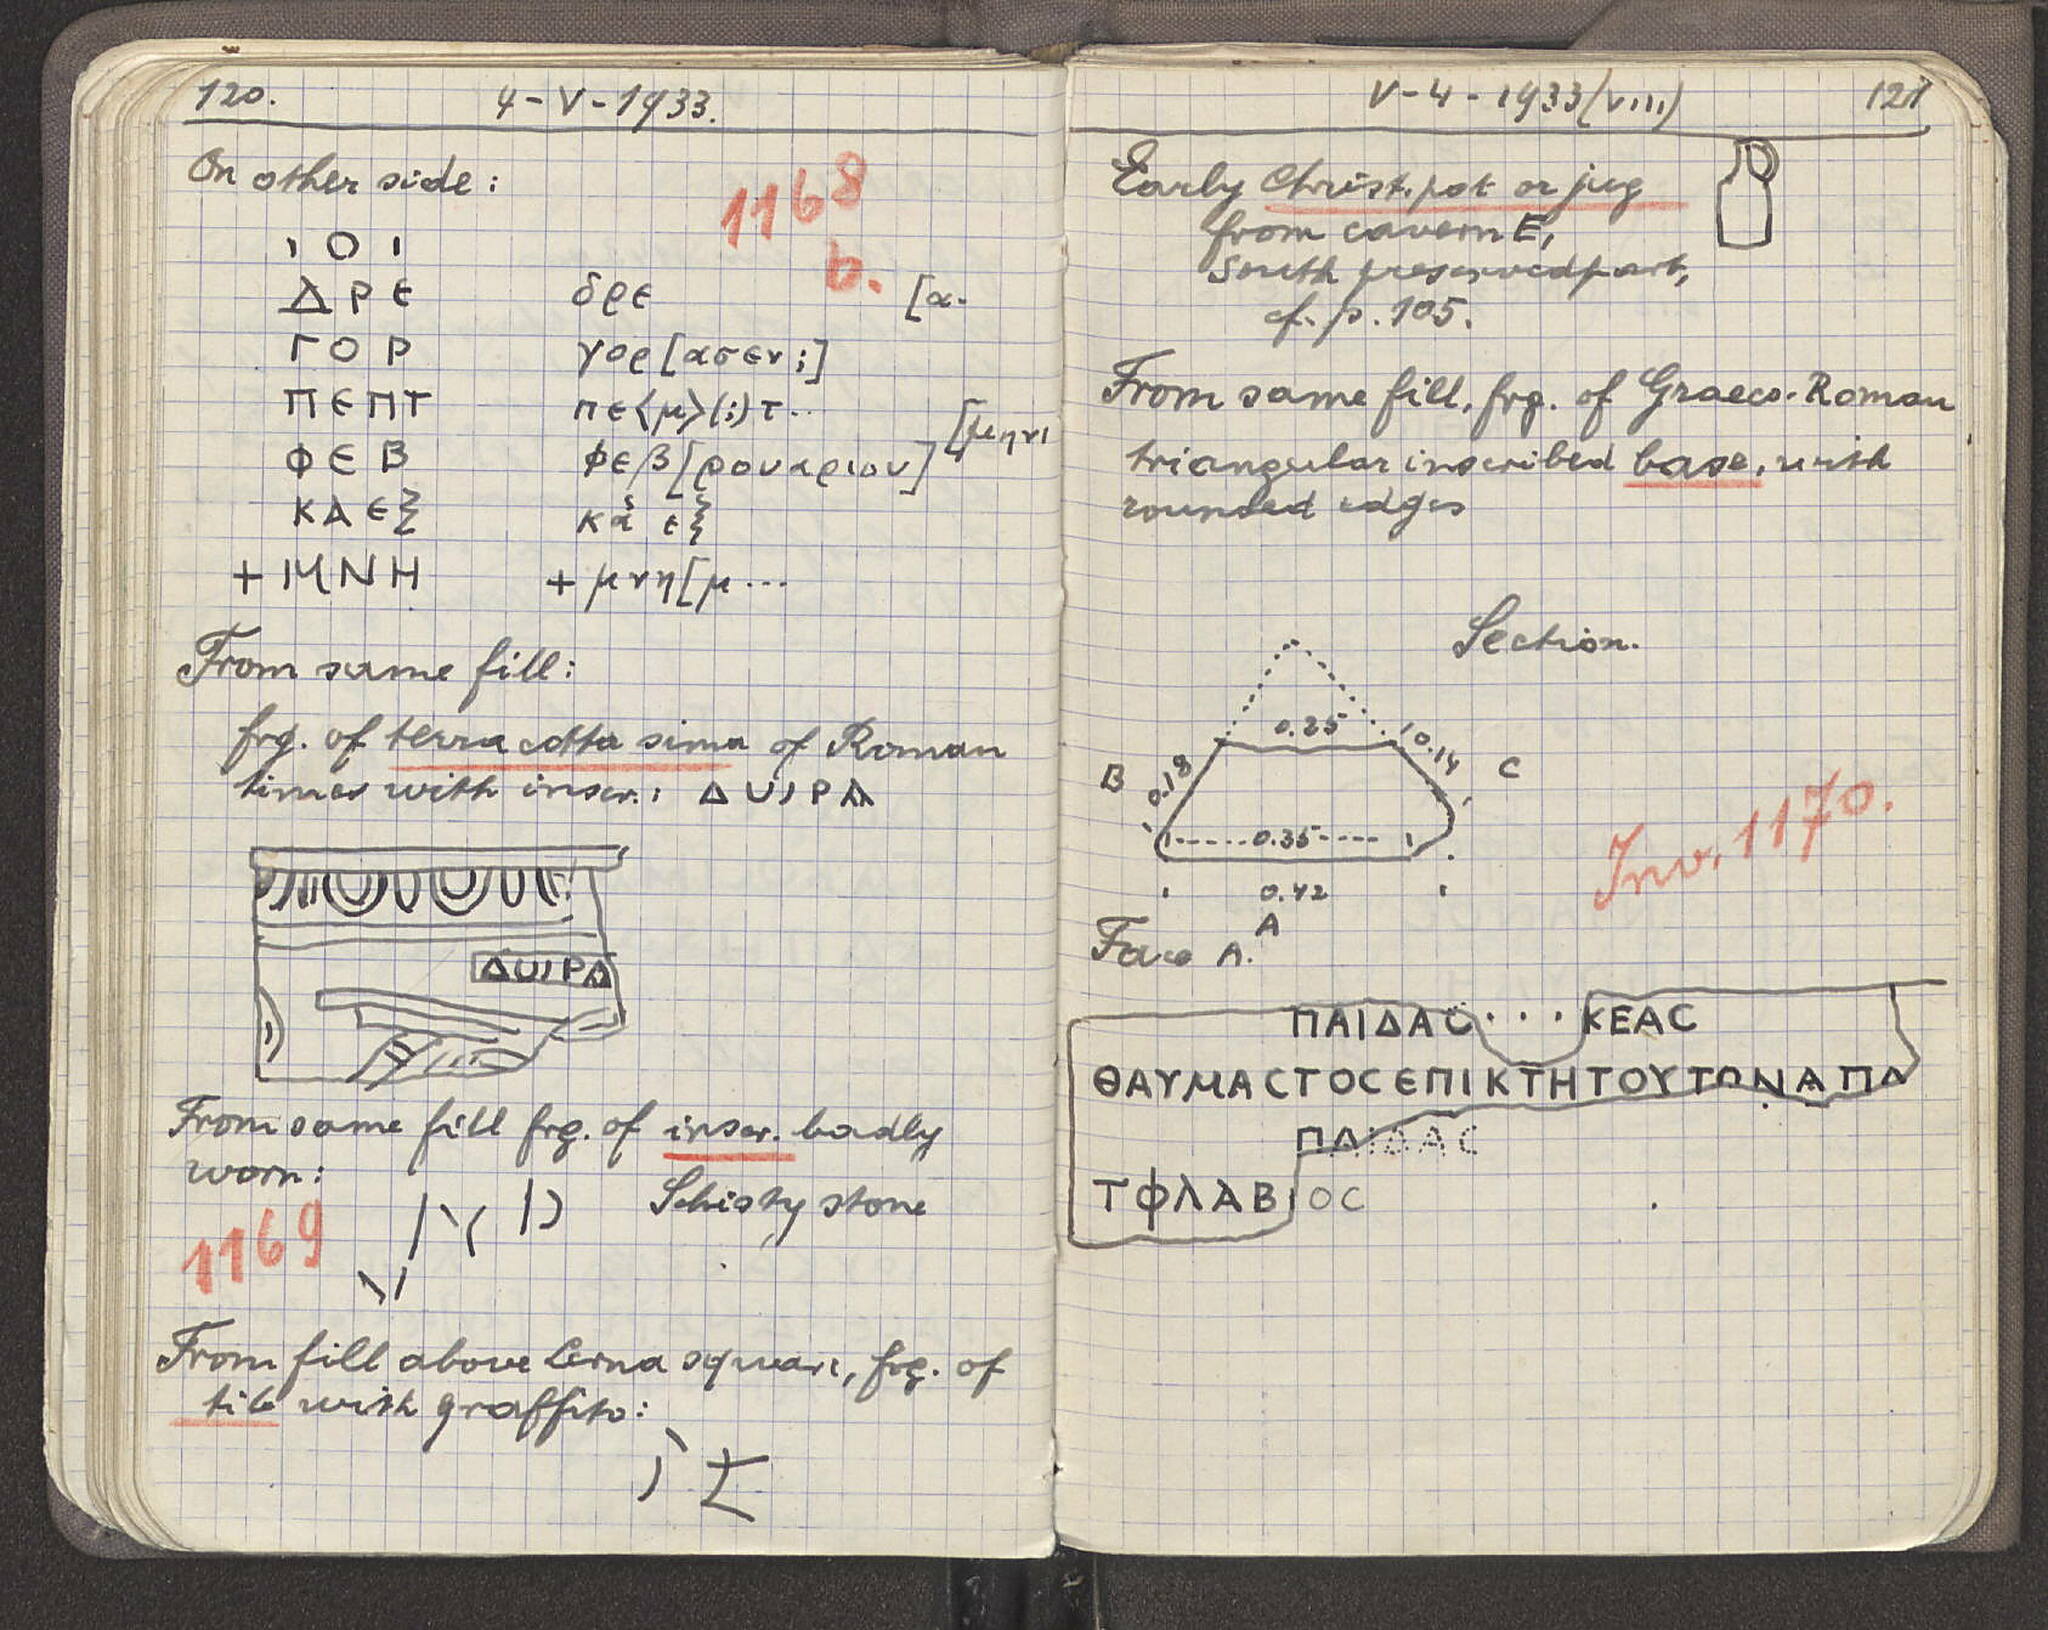 120. 4-V-1933.
On other side:
1168
b.
ΙΟΙ
ΔΡΕ δρε [α-
ΓΟΡ γορ[ασεν;]
ΠΕΠΤ πε<μ>(;)τ..
ΦΕΒ φεβ[ρουαριου] [μηνι
ΚΑΕ κα ε
+ΜΝΗ + μνη[μ...
From same fill:
frg. of terra cotta sima of Roman
times with inscr.: ΔUIPA
ΔUIPA
From same fill frg. of inscr. badly
worn:
Schisty stone
1169
From fill above Lerna square, frg. of
tile with graffito:
V-4-1933(VIII) 121
Early Christ. pot or jug
from cavern E,
South preserved part,
cf. p. 105.
From same fill, frg. of Graeco-Roman
triangular inscribed base, with
rounded edges
Section.
0.25
B 0.18 0.14 C
0.35
0.42
A
Inv. 1170.
Face A.
ΠΑΙΔΑC···ΚΕΑC
ΘΑΥΜΑCΤΟCΕΠΙΚΤΗΤΟΥΤΩΝΑΠΑ
ΠΑΙΔΑC
ΤΦΛΑΒΙΟC